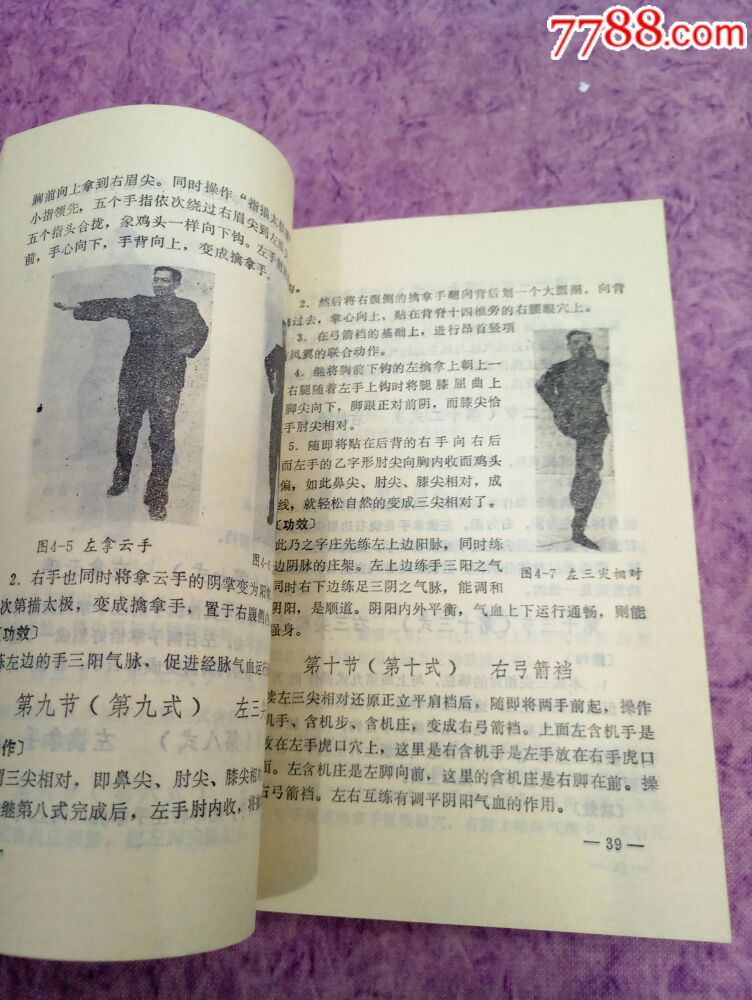 7788.com
胸前向上拿到右眉尖。同时操作“指描太极
小指领先，五个手指依次绕过右眉尖到左眉
五个指头合拢，象鸡头一样向下钩。左手
前，手心向下，手背向上，变成擒拿手。
图4-5 左拿云手
图4-6
2．右手也同时将拿云手的阴掌变为阳掌
次第描太极，变成擒拿手，置于右腹侧
功效〕
练左边的手三阳气脉，促进经脉气血运行
第九节（第九式） 左三
作〕
三尖相对，即鼻尖、肘尖、膝尖相对
继第八式完成后，左手肘内收，将
2．然后将右腹侧的擒拿手翻向背后划一个大圆圈，向背
过去，掌心向上，贴在背脊十四椎旁的右腰眼穴上。
3．在弓箭裆的基础上，进行昂首竖项
凤翼的联合动作。
4．继将胸前下钩的左擒拿上朝上一
右腿随着左手上钩时将腿膝屈曲上
脚尖向下，脚跟正对前阴，而膝尖恰
手肘尖相对。
5．随即将贴在后背的右手向右后
而左手的乙字形肘尖向胸内收而鸡头
偏，如此鼻尖、肘尖、膝尖相对，成
线，就轻松自然的变成三尖相对了。
〔功效〕
此乃之字庄先练左上边阳脉，同时练
边阴脉的庄架。左上边练手三阳之气
同时右下边练足三阴之气脉，能调和
阴阳，是顺道。阴阳内外平衡，气血上下运行通畅，则能
强身。
图4-7 左三尖相对
第十节（第十式） 右弓箭裆
卖左三尖相对还原正立平肩裆后，随即将两手前起，操作
机手、含机步、含机庄，变成右弓箭裆。上面左含机手是
放在左手虎口穴上，这里是右含机手是左手放在右手虎口
面。左含机庄是左脚向前，这里的含机庄是右脚在前。操
弓箭裆。左右互练有调平阴阳气血的作用。
—39—